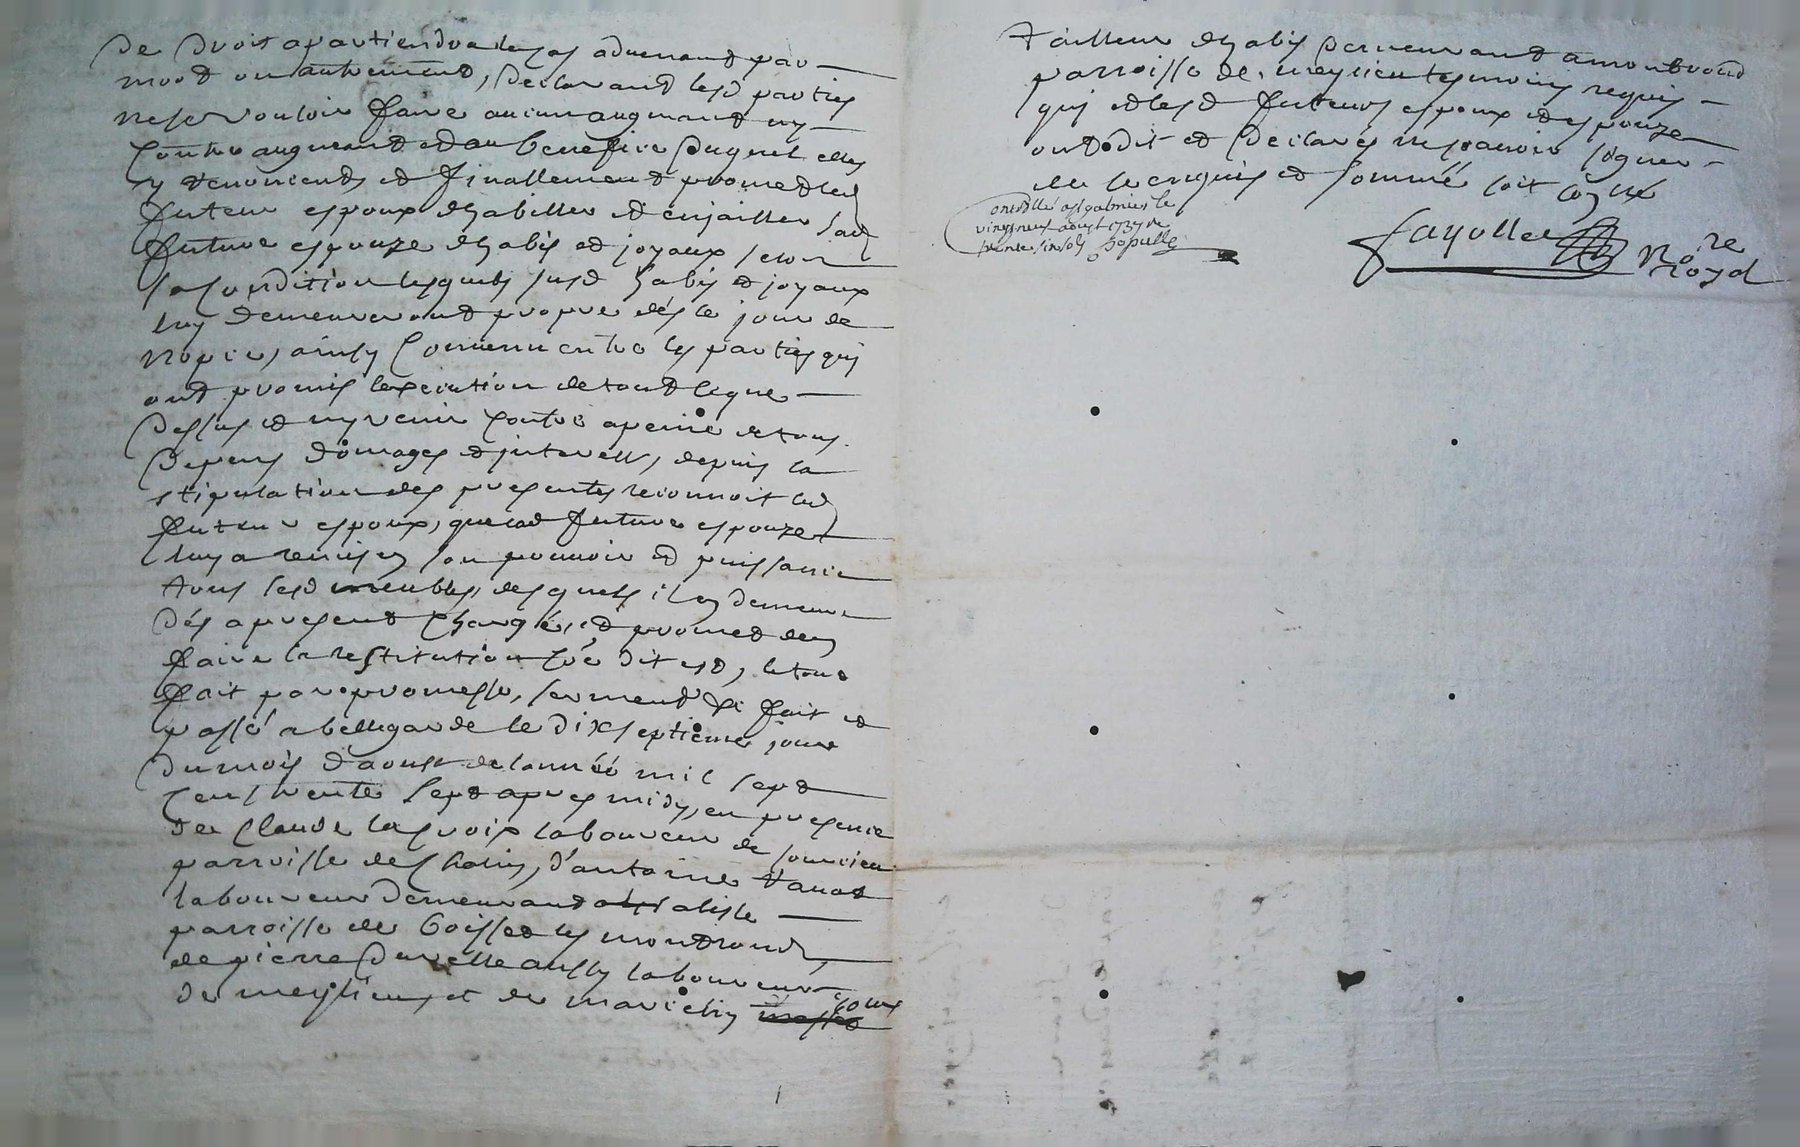 de droit apartiendra le cas advenant par
mort ou autrement, declarant lesd parties
ne se vouloir faire aucun augment ny
contre augment et au benefice duquel elles
y renoncent, et finallement promet led
futeur espoux dhabiller et enjailler lad
future espouze dhabis et joyaux selon
sa condition lesquels susd habis et joyaux
luy demeureront propre dés le jour de
nopce, ainsy convenu entre les parties qui
ont promis lexecution de tout ce que
dessus et ny venir contre a peine de tous
depens domages et interests, depuis la
stipulation des presentes reconnoit led
futeur espoux, que lad future espouze
luy a remis en son pouvoir et puissance
tous lesd meubles, desquels il en demeure
dés a present chargé, et promet den
faire la restitution co'e dit est, le tout
fait par promesse, serment &c fait et
passé a bellegarde le dixseptieme jour
du mois d'aoust de lannéé mil sept
cens trente sept apres midy, en presence
de Claude lacroix laboureur de
parroisse de Chatin, d'antoine
laboureur demeurant a
parroisse de boisset les montrond,
de pierre Durelle aussy laboureur
de meylieu, et de
tailleur dhabis demeurant a montrond
parroisse de meylieu tesmoins requis
qui et lesd futeurs espoux et espouze
ont dit et declarés ne scavoir signer
de ce enquis et sommé soit
controllé a st galmier le
vingt neuf aoust 1737 re
Fayolle
No.re
Royal